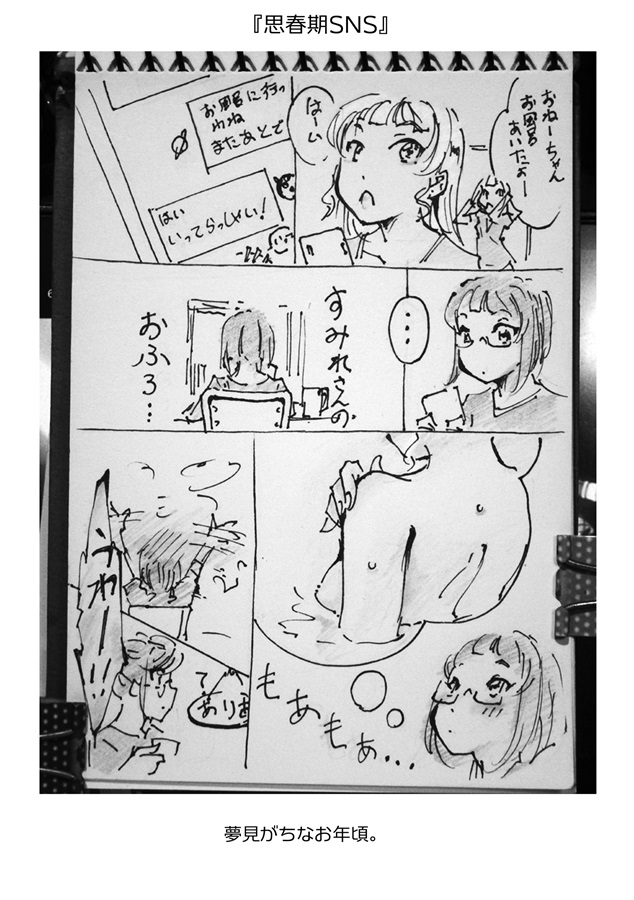 『思春期SNS』
おねーちゃん
お風呂
あいたよー
はーい
お風呂に行っ
わね
またあとで
はい
いってらっしゃい!
・・・
すみれさんの
おふろ…
もあもあ…
うわーー!!
夢見がちなお年頃。